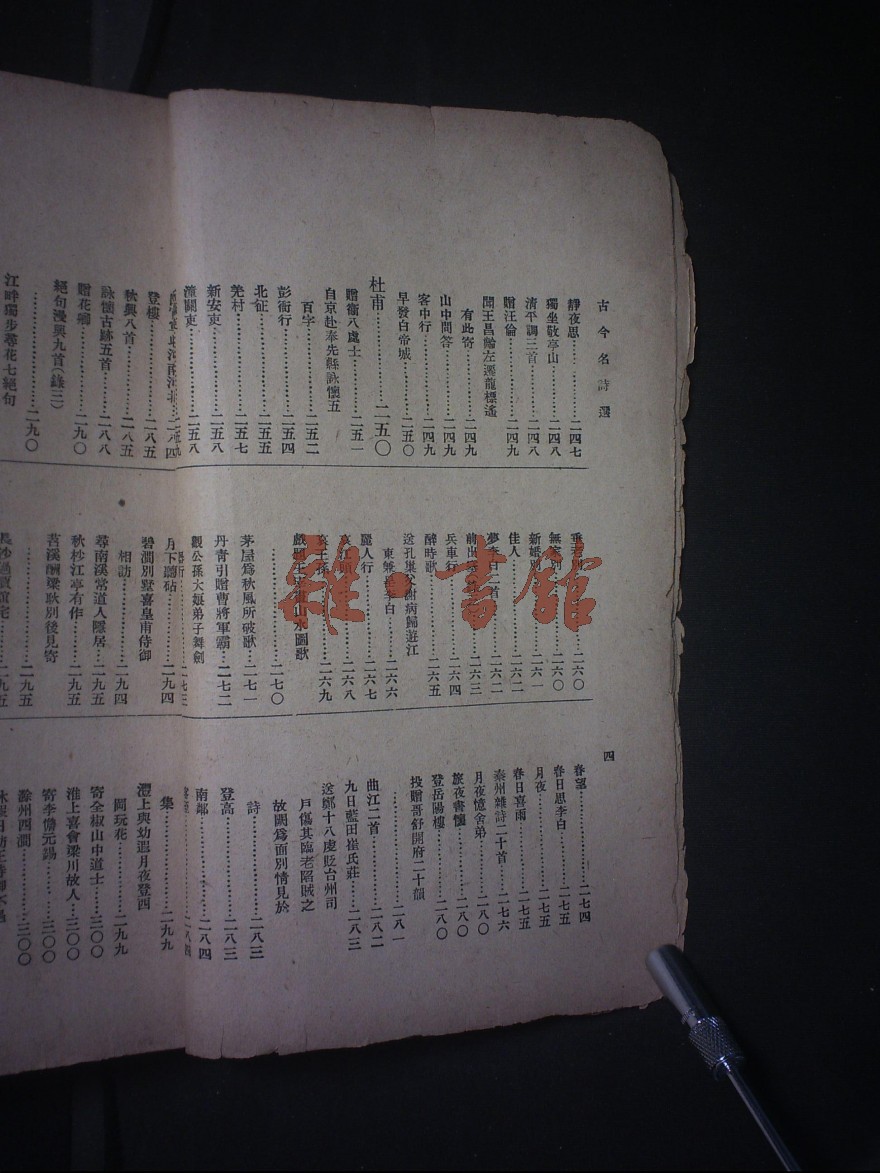 古今名詩選
四
靜夜思…………二四七
獨坐敬亭山…………二四八
清平調三首…………二四八
贈汪倫…………二四九
聞王昌齡左遷龍標遙
有此寄…………二四九
山中問答…………二四九
客中行…………二四九
早發白帝城…………二五〇
杜甫…………二五〇
贈衞八處士…………二五一
自京赴奉先縣詠懷五
百字…………二五二
彭衙行…………二五四
北征…………二五五
羌村…………二五七
新安吏…………二五八
潼關吏…………二五八
垂老別…………二六〇
無家別…………二六〇
新婚別…………二六一
佳人…………二六二
夢李白二首…………二六二
前出塞…………二六三
兵車行…………二六四
醉時歌…………二六五
送孔巢父謝病歸遊江
東兼呈李白…………二六六
麗人行…………二六七
哀江頭…………二六八
哀王孫…………二六九
戲題王宰畫山水圖歌
…………二七〇
茅屋爲秋風所破歌…………二七一
丹青引贈曹將軍霸…………二七二
觀公孫大娘弟子舞劍
春望…………二七四
春日思李白…………二七五
月夜…………二七五
春日喜雨…………二七五
秦州雜詩二十首…………二七六
月夜憶舍弟…………二八〇
旅夜書懷…………二八〇
登岳陽樓…………二八〇
投贈哥舒開府二十韻
…………二八一
曲江二首…………二八二
九日藍田崔氏莊…………二八三
送鄭十八虔貶台州司
戶傷其臨老陷賊之
故闕爲面別情見於
詩…………二八三
登高…………二八三
南鄰…………二八四
登樓…………二八五
秋興八首…………二八五
詠懷古跡五首…………二八八
贈花卿…………二九〇
絕句漫興九首(錄三)
…………二九〇
江畔獨步尋花七絕句
月下聽砧…………二九四
碧澗別墅喜皇甫侍御
相訪…………二九四
尋南溪常道人隱居…………二九五
秋杪江亭有作…………二九五
苕溪酬梁耿別後見寄
…………二九五
長沙過賈誼宅…………二九五
集…………二九九
灃上與幼遐月夜登西
岡玩花…………二九九
寄全椒山中道士…………三〇〇
淮上喜會梁川故人…………三〇〇
寄李儋元錫…………三〇〇
滁州西澗…………三〇〇
雜·書館